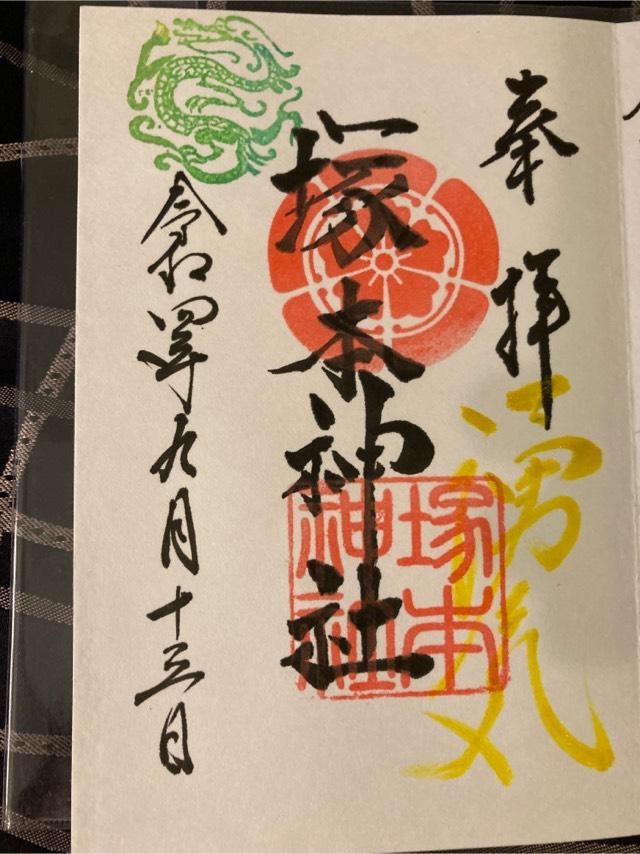 奉拝
塚本神社
塚本
神社
令和四年九月十三日